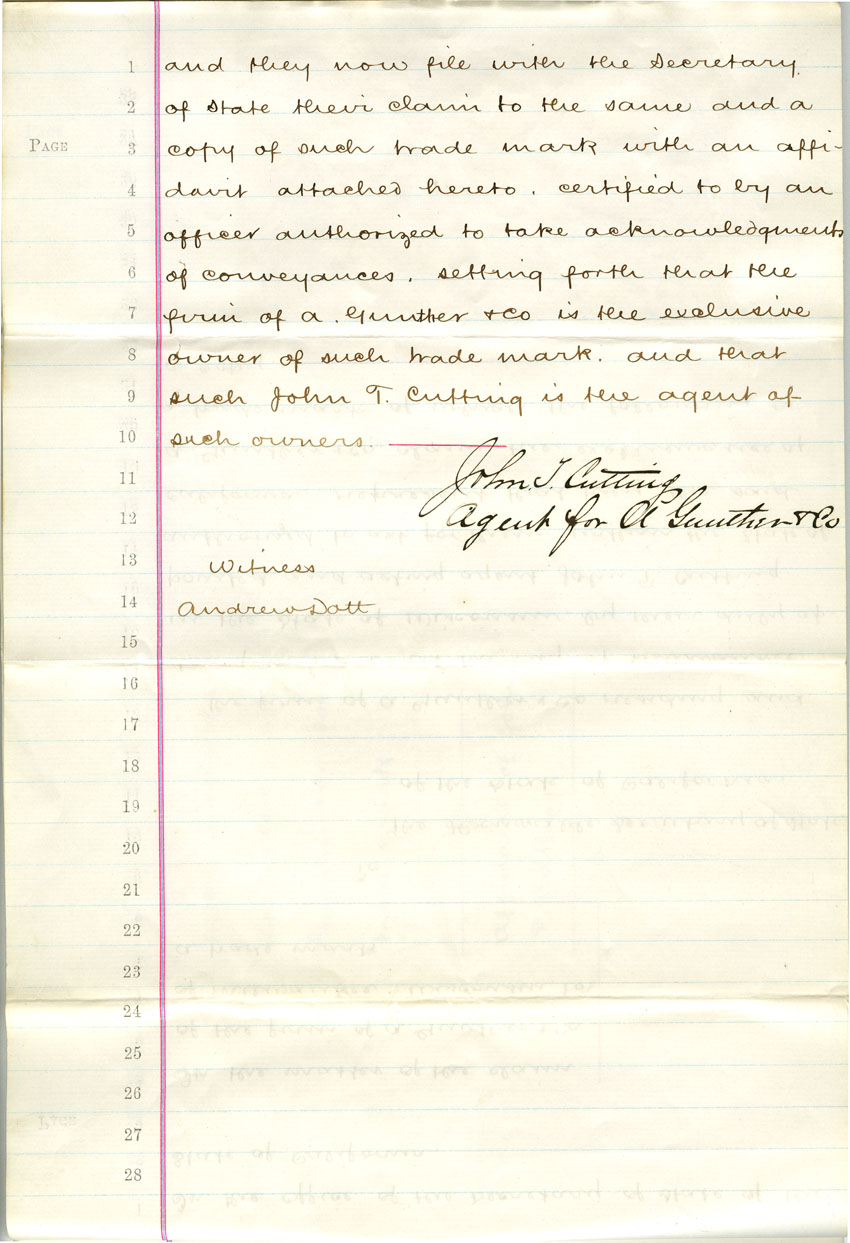 1 and they now file with the Secretary
2 of State their claim to the same and a
PAGE 3 copy of such trade mark with an affi-
4 davit attached hereto. certified to by an
5 officer authorized to take acknowledgments
6 of conveyances. setting forth that the
7 firm of A. Gunther & Co is the exclusive
8 owner of such trade mark. and that
9 such John T. Cutting is the agent of
10 such owners.
11 John. T. Cutting
12 Agent for A Gunther & Co
13 Witness
14 Andrew Dott
15
16
17
18
19
20
21
22
23
24
25
26
27
28